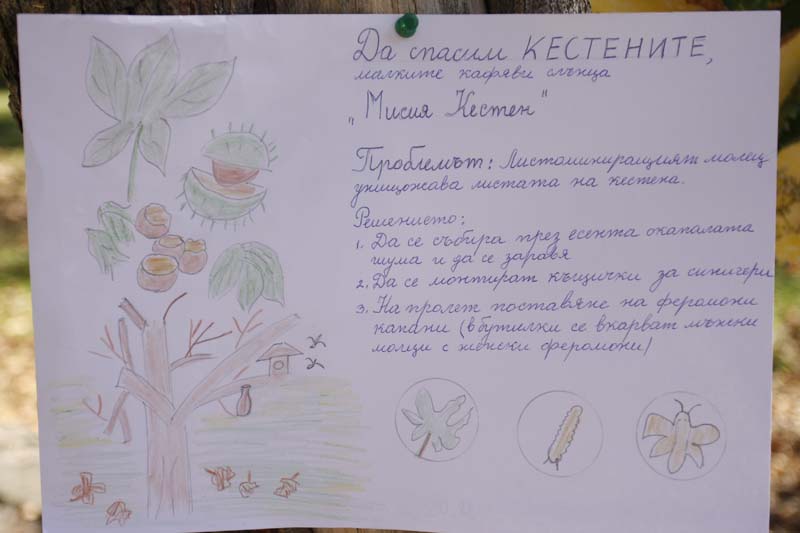 Да спасим КЕСТЕНИТЕ,
малките кафяви слънца
„Мисия Кестен"
Проблемът: Листоминиращият молец
унищожава листата на кестена.
Решението:
1. Да се събира през есента окапалата
шума и да се заравя
2. Да се монтират къщички за синигери
3. На пролет поставяне на феромони
капани (в бутилки се вкарват мъжки
молци с женски феромони)